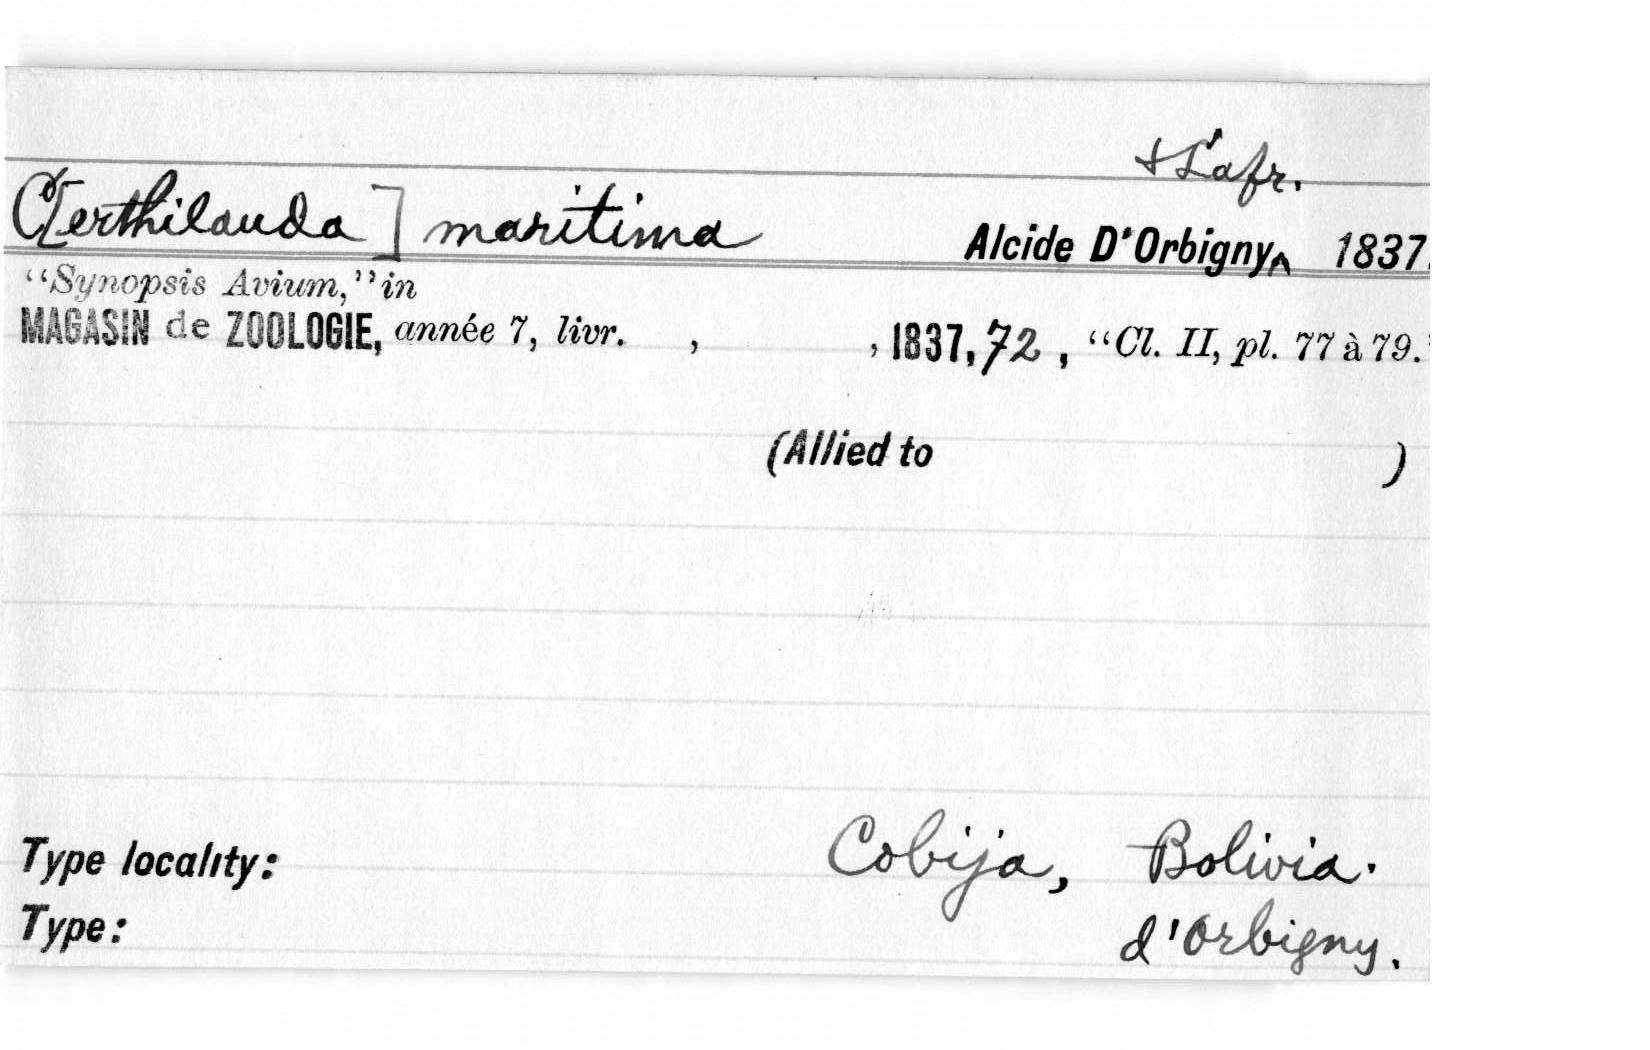 & Lafr.
C[erthilauda] maritima Alcide D'Orbigny^ 1837.
“Synopsis Avium,” in
MAGASIN de ZOOLOGIE, année 7, livr. , , 1837, 72, “Cl. II, pl. 77 à 79.”
(Allied to )
Type locality: Cobija, Bolivia.
Type: d'Orbigny.